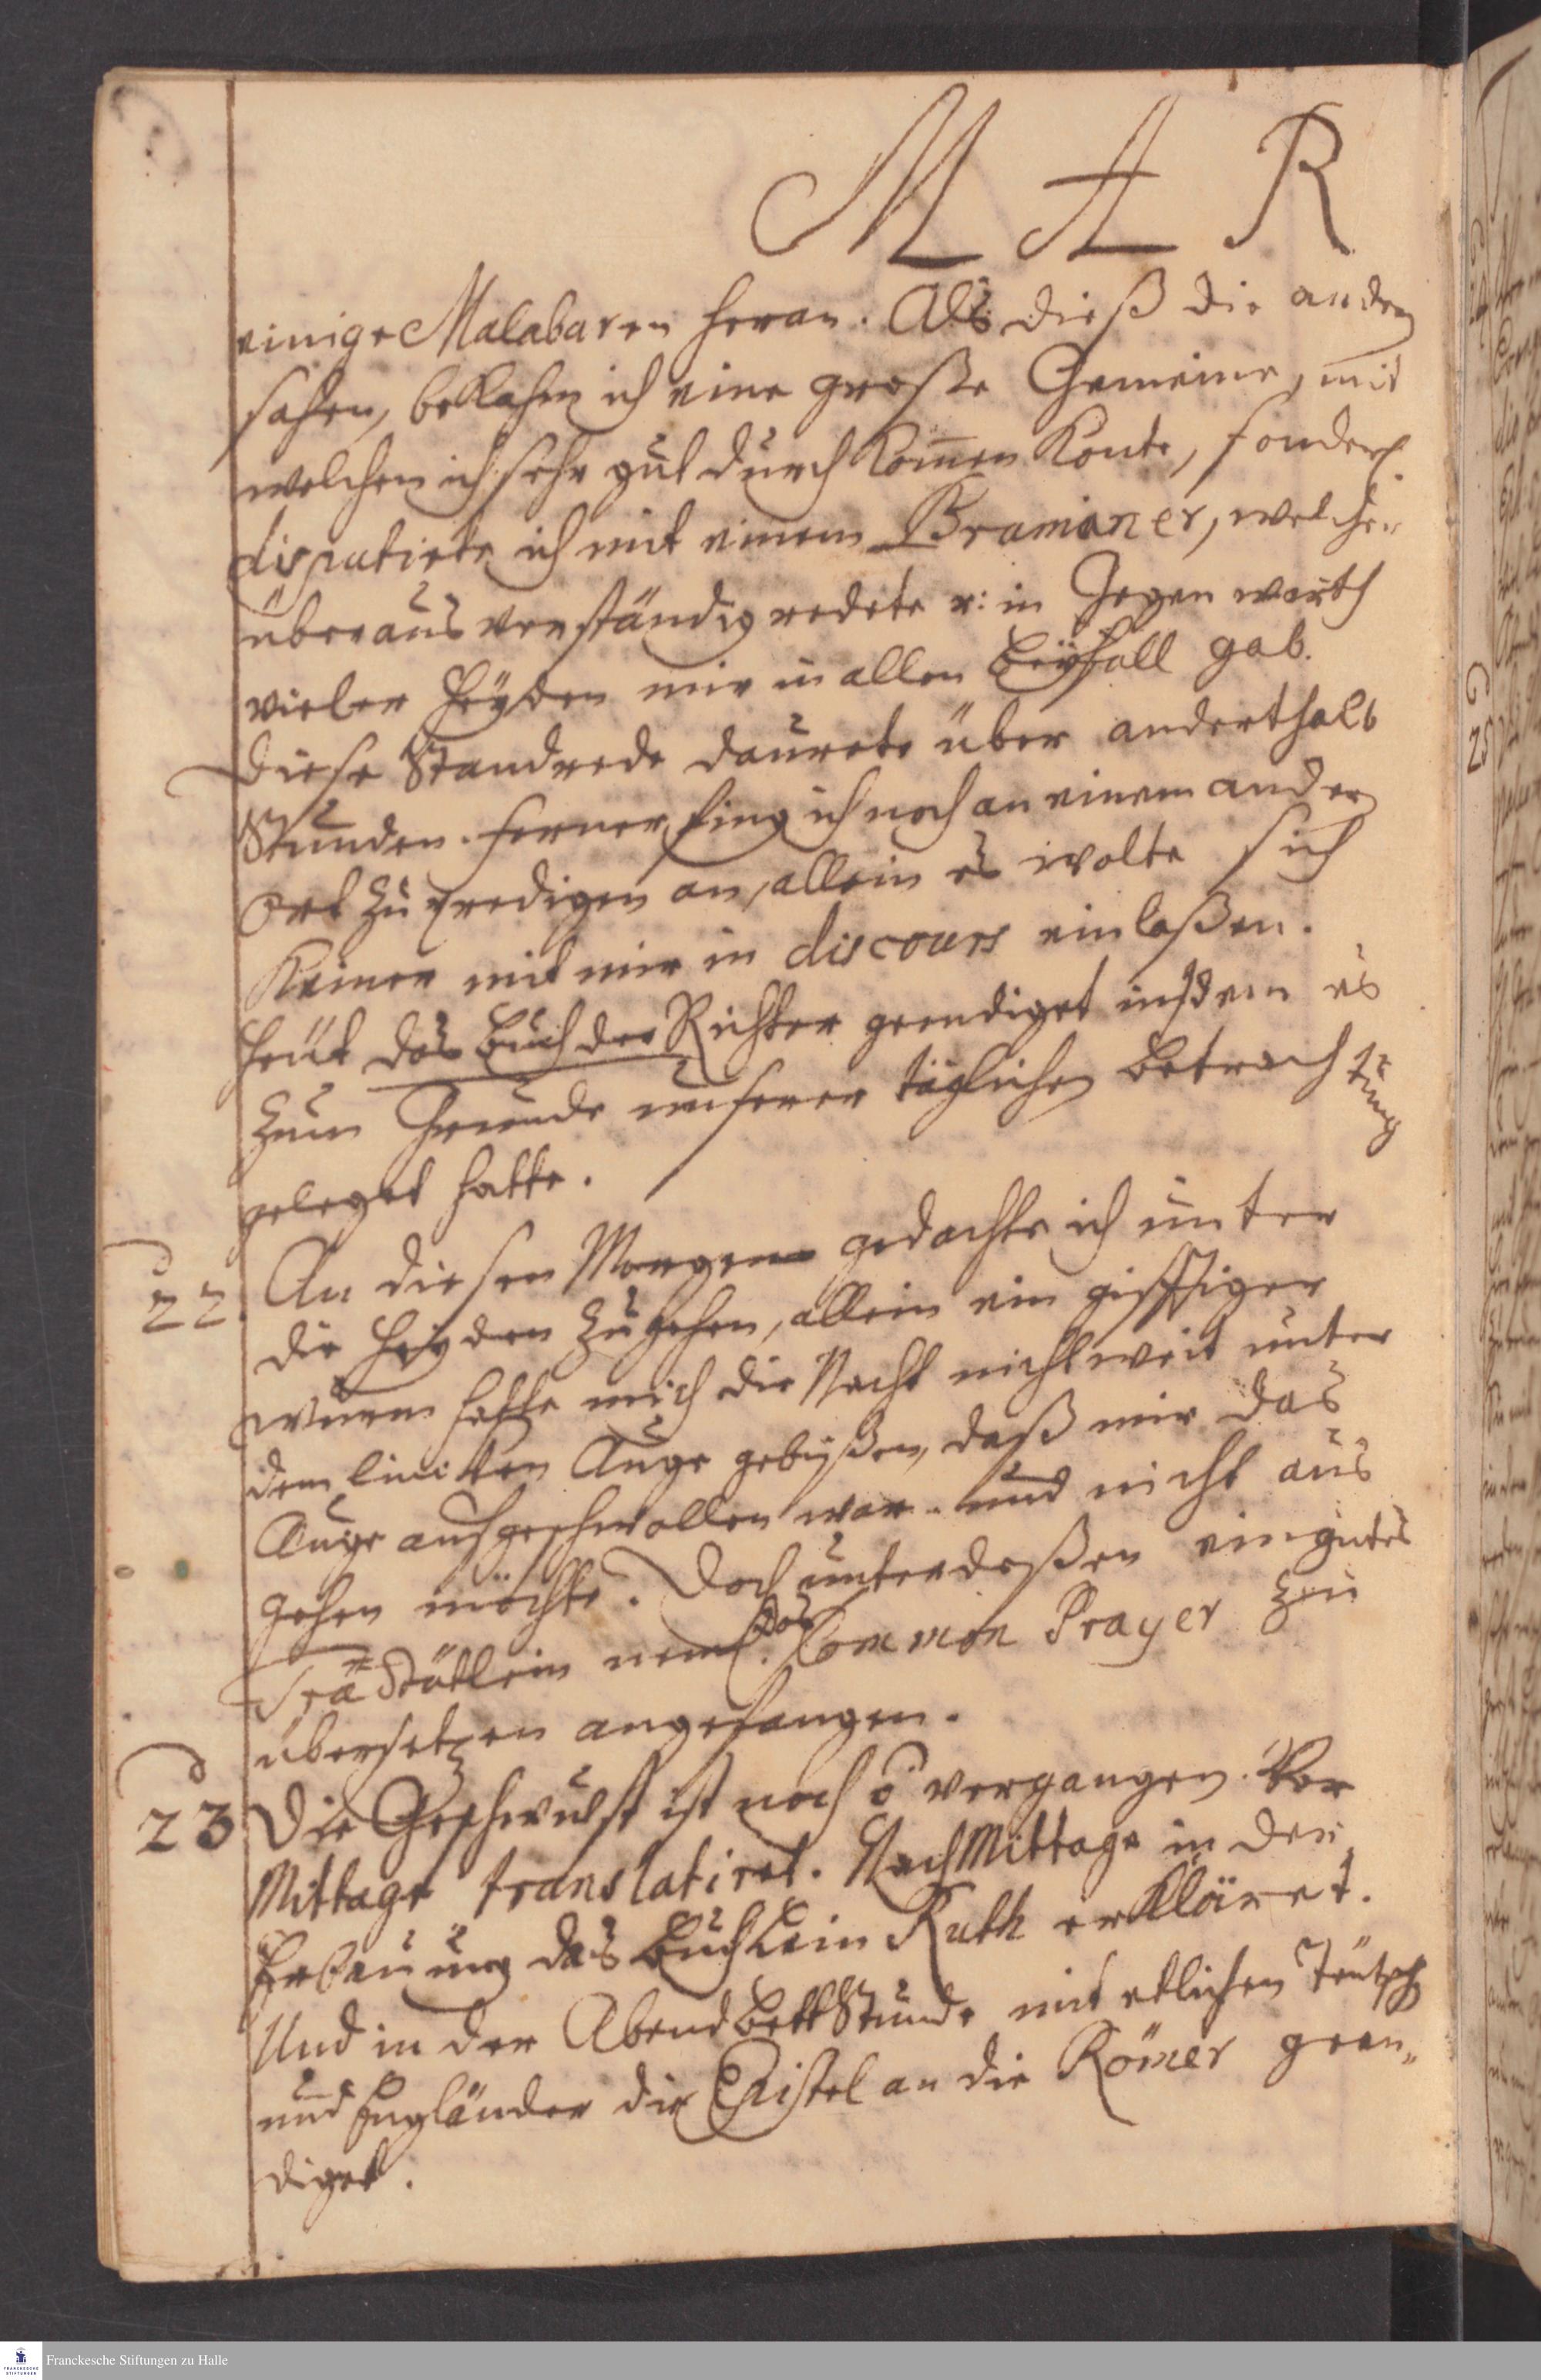 M A R
einige Malabaren heran. Als dieß die andern
sahen, bekahm ich eine große Gemeine, mit
welchen ich sehr gut durch kom̄en konte, sonderl.
disputirte ich mit einem Braminer, welcher
überaus verständig redete u: in Gegenwarth
vieler Heyden mir in allen Beyfall gab.
Diese Standrede daurete über anderthalb
Stunden. Ferner fing ich noch an einem andern
Ort zu predigen an, allein es wolte sich
Keiner mit mir in discours einlaßen.
Heut das Buch der Richter geendiget indem es
zum Grunde unserer täglichen Betrachtung
geleget hatte.
22. An diesen Morgen gedachte ich unter
die Heyden zu gehen, allein ein gifftiger
Wurm hatte mich die Nacht nicht weit unter
dem lincken Auge gebißen, daß mir das
Auge aufgeschwollen war und nicht aus
gehen möchte. Doch unterdeßen ein gutes
neml. das Common Prayer zu
übersetzen angefangen.
23 Die Geschwulst ist noch ō vergangen. Vor
Mittage translatiret. NachMittage in der
Erbauung das Büchlein Ruth erkläret.
Und in der Abend BettStunde mit etlichen Teutsch
und Engländer die Epistel an die Römer geen„
diget.
Franckesche Stiftungen zu Halle